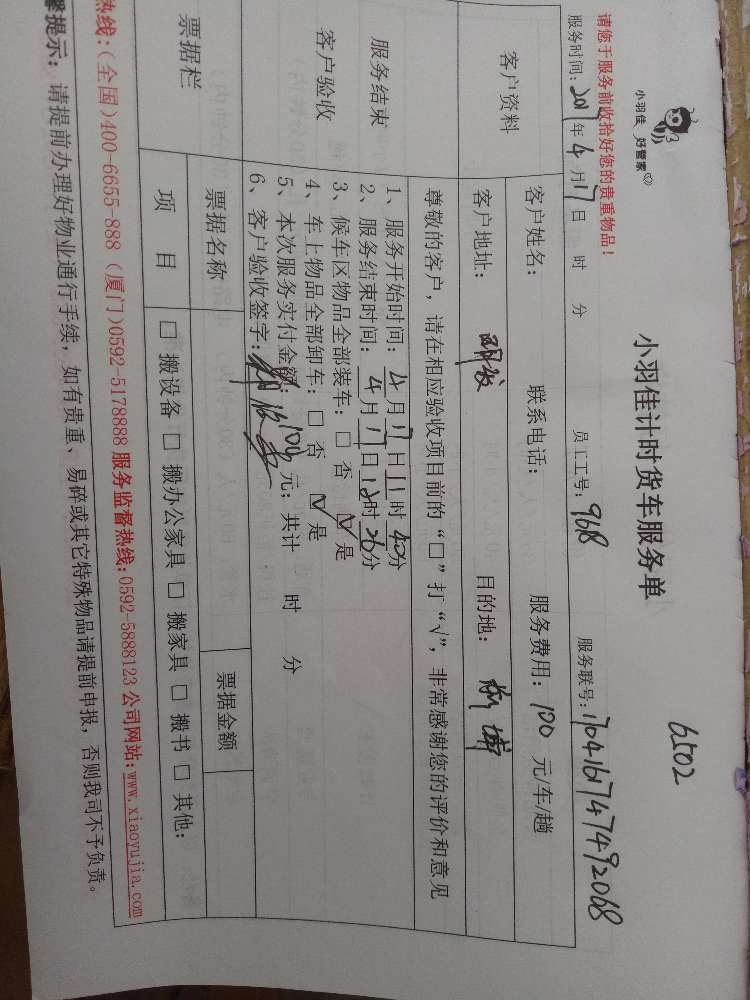 小羽佳 好管家
小羽佳计时货车服务单
6502
请您于服务前收拾好您的贵重物品！
服务时间：201 年 4 月 17 日 时 分 员工工号：968 服务联号：170416747492068
客户资料
客户姓名： 联系电话： 服务费用：100 元/车/趟
客户地址： 目的地：
服务结束
客户验收
尊敬的客户，请在相应验收项目前的“□”打“√”，非常感谢您的评价和意见
1、服务开始时间：4月17日11时40分
2、服务结束时间：4月17日12时26分
3、候车区物品全部装车：□ 否 ☑ 是
4、车上物品全部卸车：□ 否 ☑ 是
5、本次服务实付金额：100 元；共计 时 分
6、客户验收签字：
票据栏
票据名称 票据金额
项 目 □ 搬设备 □ 搬办公家具 □ 搬家具 □ 搬书 □ 其他：
热线：(全国)400-6655-888 (厦门)0592-5178888 服务监督热线：0592-5888123 公司网站：www.xiaoyujia.com
提示：请提前办理好物业通行手续，如有贵重、易碎或其它特殊物品请提前申报，否则我司不予负责。